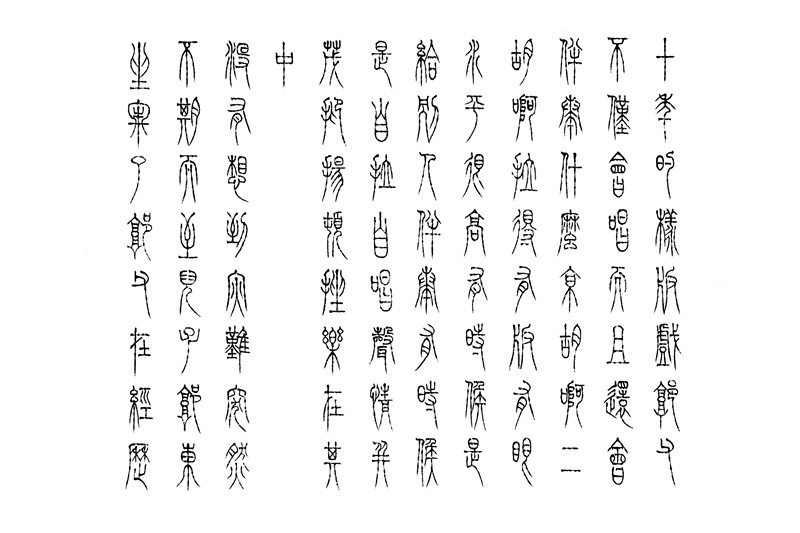 十年的樣版戲父
不僅會唱而且還會
伴奏什麼京胡啊二
胡啊拉得有版有眼
水平很高有時候是
給別人伴奏有時候
是自拉自唱聲情并
茂抑揚頓挫樂在其
中
沒有想到災難突然
不期而至兒子東
坐案了父在經歷